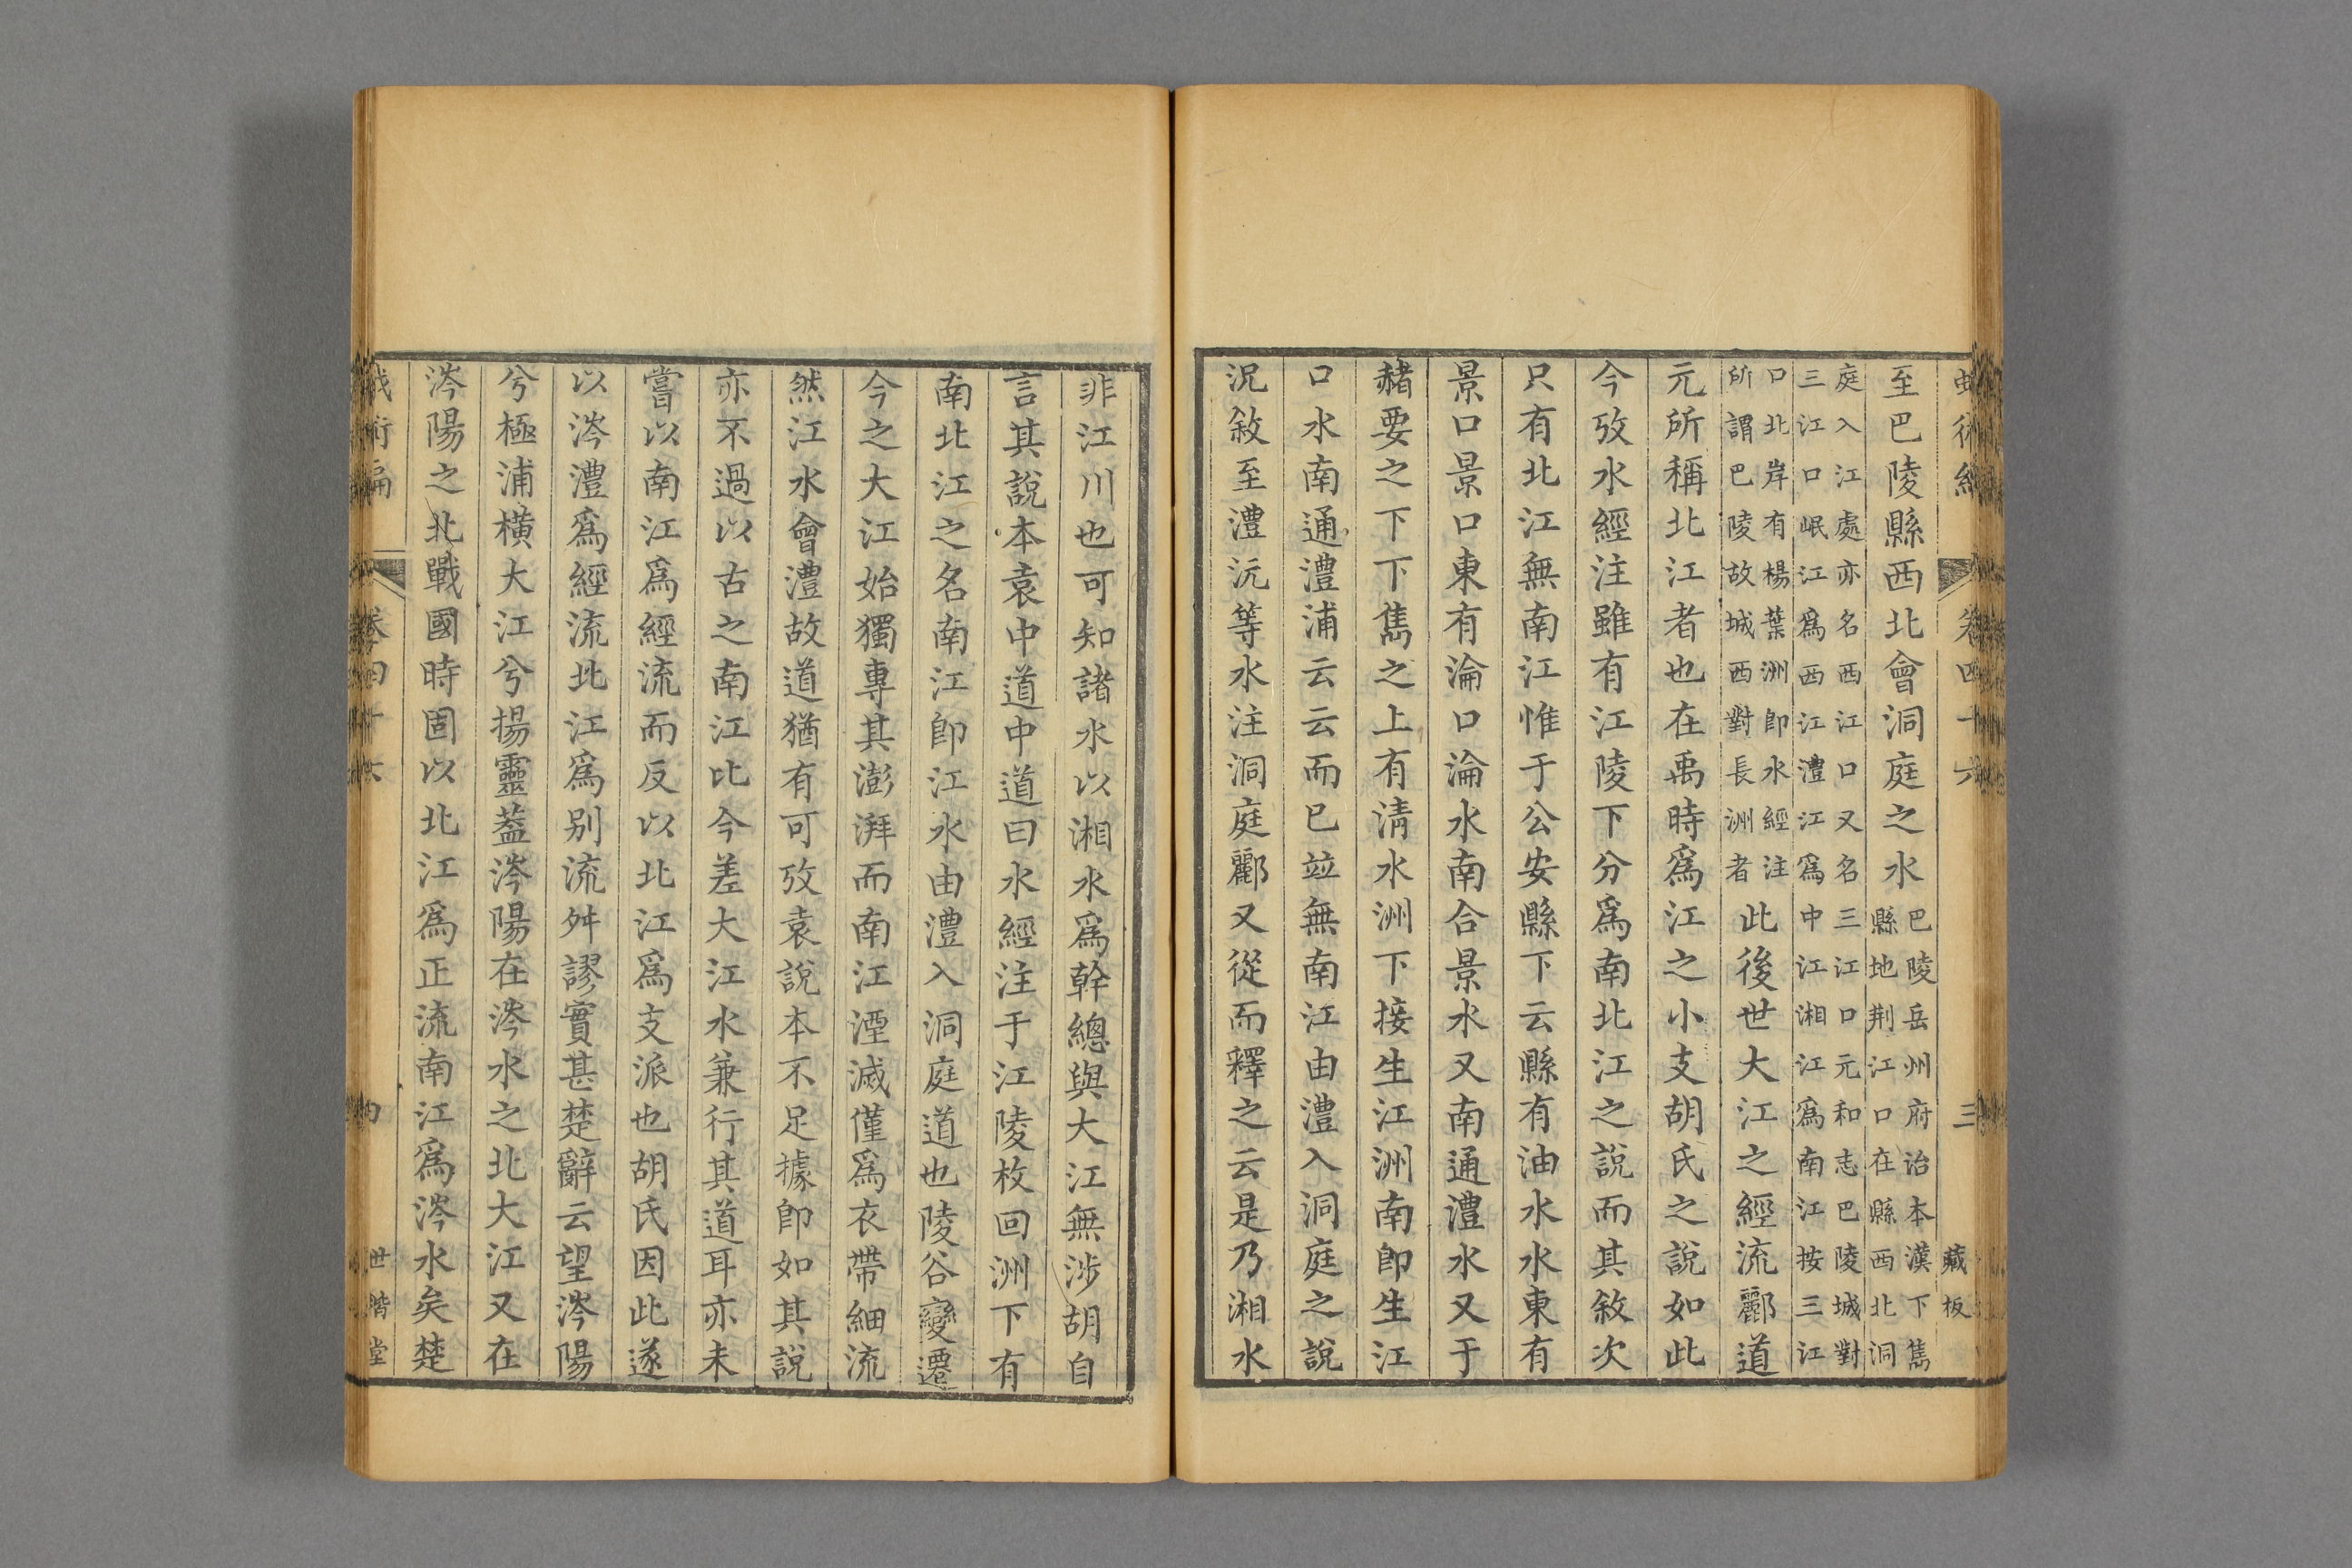 卷四十六 三 藏板
至巴陵縣西北會洞庭之水巴陵岳州府治本漢下雋縣地荆江口在縣西北洞
庭入江處亦名西江口又名三江口元和志巴陵城對三江口岷江爲西江澧江爲中江湘江爲南江按三江
口北岸有楊葉洲卽水經注所謂巴陵故城西對長洲者此後世大江之經流酈道
元所稱北江者也在禹時爲江之小支胡氏之說如此
今攷水經注雖有江陵下分爲南北江之說而其敘次
只有北江無南江惟于公安縣下云縣有油水水東有
景口景口東有淪口淪水南合景水又南通澧水又于
赭要之下下雋之上有清水洲下接生江洲南卽生江
口水南通澧浦云云而已竝無南江由澧入洞庭之說
況敘至澧沅等水注洞庭酈又從而釋之云是乃湘水
非江川也可知諸水以湘水爲幹總與大江無涉胡自
言其說本袁中道中道曰水經注于江陵枚回洲下有
南北江之名南江卽江水由澧入洞庭道也陵谷變遷
今之大江始獨專其澎湃而南江湮滅僅爲衣帶細流
然江水會澧故道猶有可攷袁說本不足據卽如其說
亦不過以古之南江比今差大江水兼行其道耳亦未
嘗以南江爲經流而反以北江爲支派也胡氏因此遂
以涔澧爲經流北江爲別流舛謬實甚楚辭云望涔陽
兮極浦橫大江兮揚靈葢涔陽在涔水之北大江又在
涔陽之北戰國時固以北江爲正流南江爲涔水矣楚
卷四十六 世楷堂